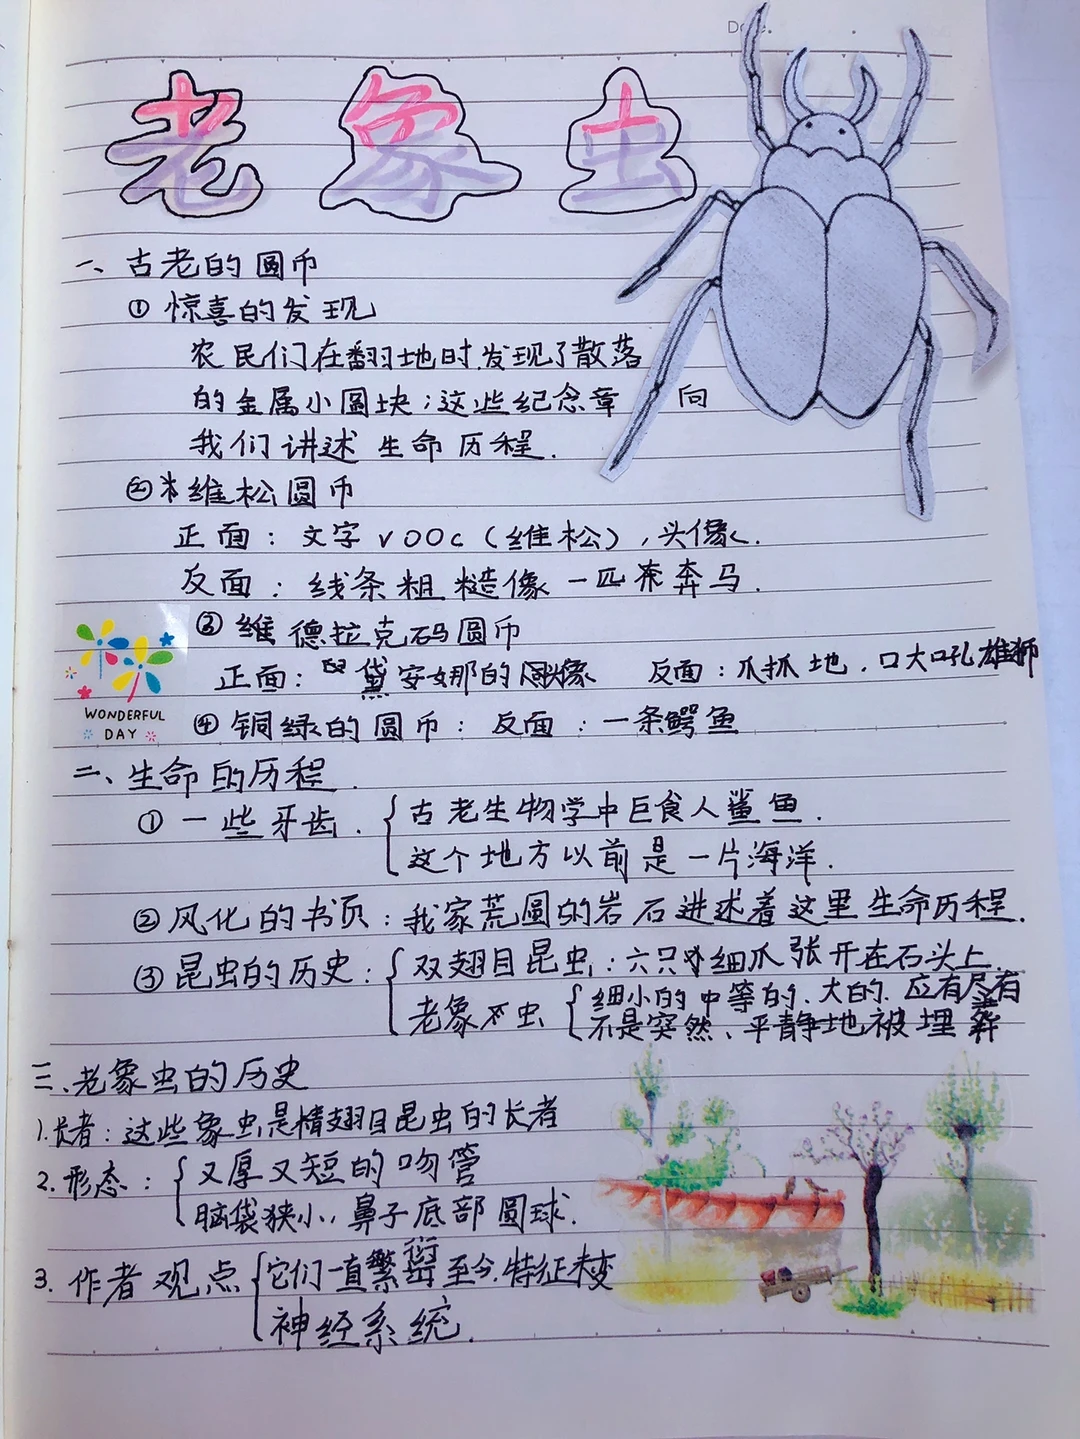 老象虫
一、古老的圆币
① 惊喜的发现
农民们在翻地时.发现了散落
的金属小圆块；这些纪念章 向
我们讲述 生命历程.
②米维松圆币
正面：文字 vooc（维松），头像.
反面：线条粗糙像一匹奔马.
③ 维德拉克码圆币
正面：黛安娜的头像 反面：爪抓地，口大口吼雄狮
④ 铜绿的圆币：反面：一条鳄鱼
WONDERFUL
DAY
二、生命的历程.
① 一些牙齿. 古老生物学中巨食人鲨鱼.
这个地方以前是一片海洋.
② 风化的书页：我家荒圆的岩石进述着这里生命历程.
③ 昆虫的历史：双翅目昆虫：六只细爪张开在石头上.
老象虫 细小的中等的、大的.应有尽有
不是突然、平静地被埋葬
三.老象虫的历史
1.长者：这些象虫是精翅目昆虫的长者
2.形态：又厚又短的吻管
脑袋狭小，鼻子底部圆球.
3.作者观点 它们一直繁衍至今.特征未变
神经系统.